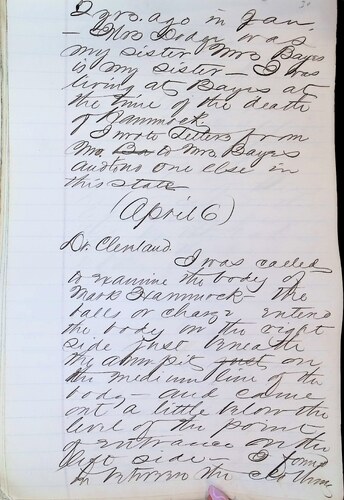 2 yrs. ago in Jan.
– Mrs Dodge was
my sister Mrs Bayes
is my sister – I was
living at Bayes at
the time of the death
of Hammock.
I wrote Letters from
Mo. to Mrs Bayes
and to no one else in
this state
(April 6)
Dr. Clenland.
I was called
to examine the body of
Mark Hammock – the
balls or charge entered
the body on the right
side just beneath
the armpit just on
the medium line of the
body – and came
out a little below the
level of the point
of entrance on the
left side – I found
in between the clothing